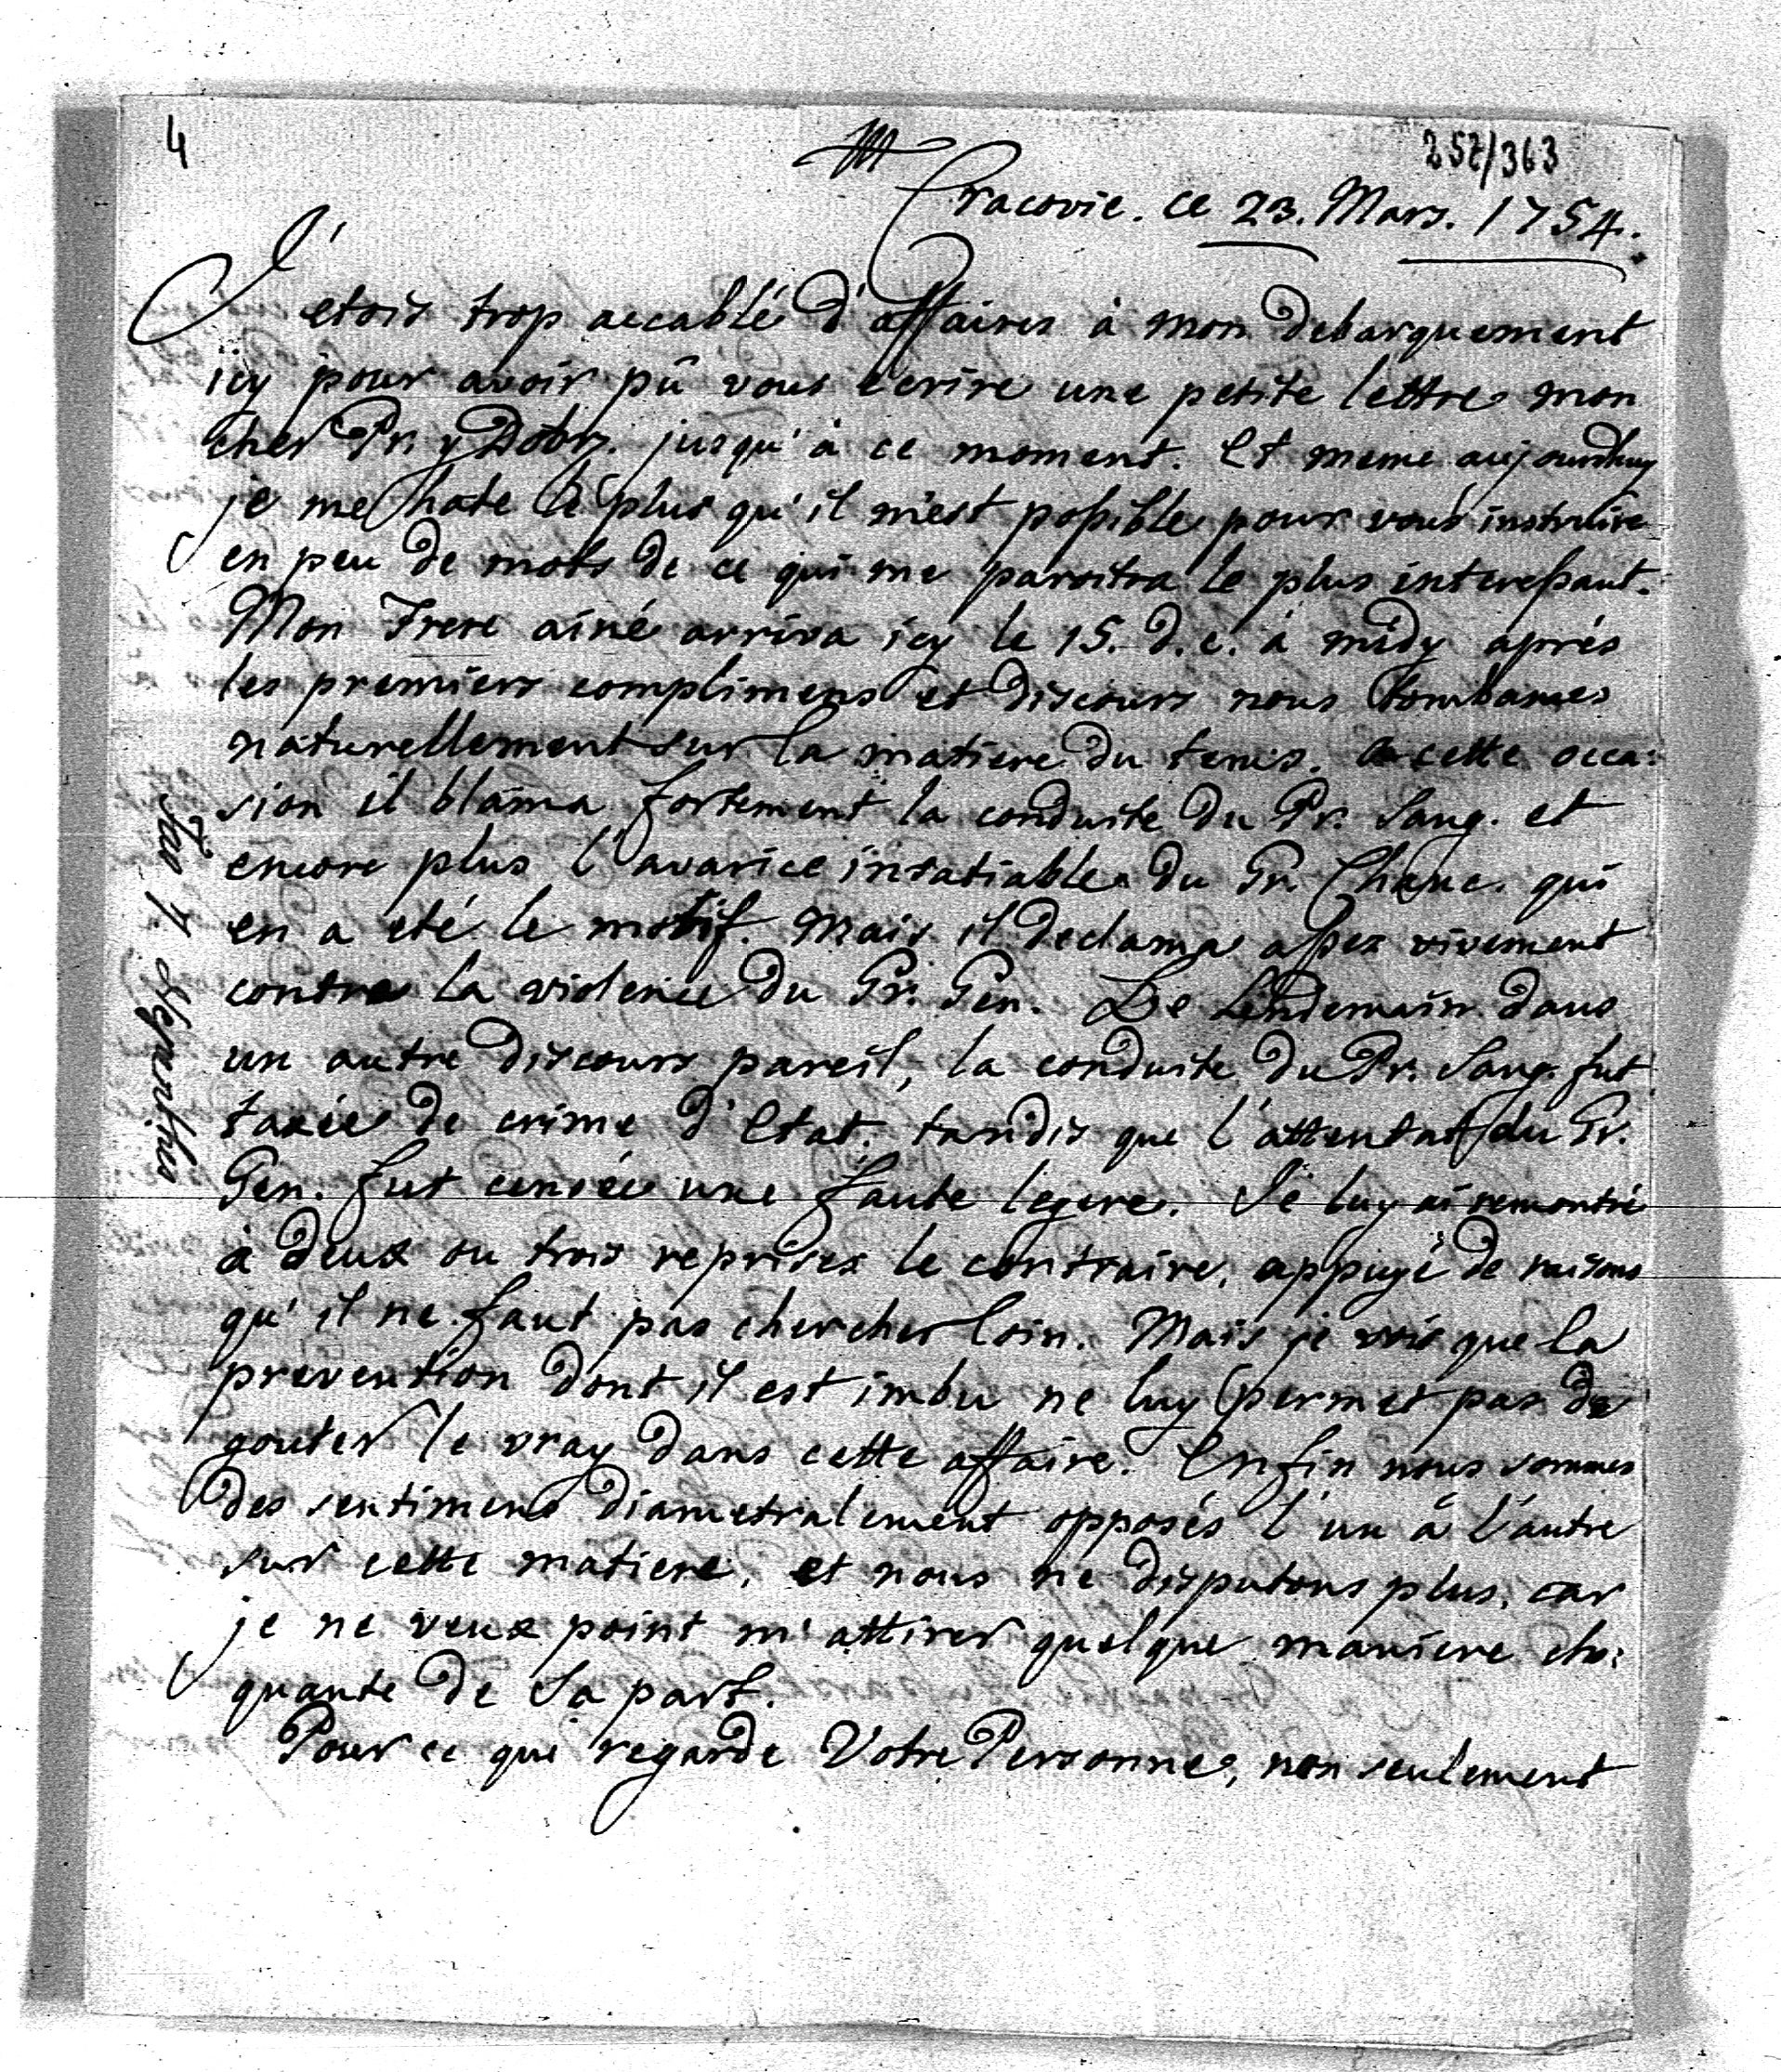 4
257/363
Cracovie. ce 23. Mars. 1754.
J'etois trop accablé d'affaires à mon debarquement
icy pour avoir pû vous ecrire une petite lettre mon
cher Pr. y Dobr. jusqu'à ce moment. Et meme aujourdhuy
je me hate le plus qu'il m'est possible pour vous instruire
en peu de mots de ce qui me paroitra le plus interessant.
Mon Frere ainé arriva icy le 15. d. c. à midy aprés
les premiers complimens et discours nous tombames
naturellement sur la matiere du tems. a cette occa:
sion il blama fortement la conduite du Pr. Sang. et
encore plus l'avarice insatiable du Gr. Chanc. qui
en a eté le motif. Mais il declama assez vivement
contre la violence du Gr. Gen. Le Lendemain dans
un autre discours pareil, la conduite du Pr. Sang. fut
taxée de crime d'Etat. tandis que l'attentat du Gr.
Gen. fut censée une faute legere. Je luy ai remontré
à deux ou trois reprises le contraire, appuyé de raisons
qu'il ne faut pas chercher loin. Mais je vois que la
prevention dont il est imbu ne luy permet pas de
gouter le vray dans cette affaire. Enfin nous sommes
des sentimens diametralement opposés l'un à l'autre
sur cette matiere, et nous ne disputons plus, car
je ne veux point m'attirer quelque maniere cho:
quante de Sa part.
Pour ce que regarde Votre Personne, non seulement